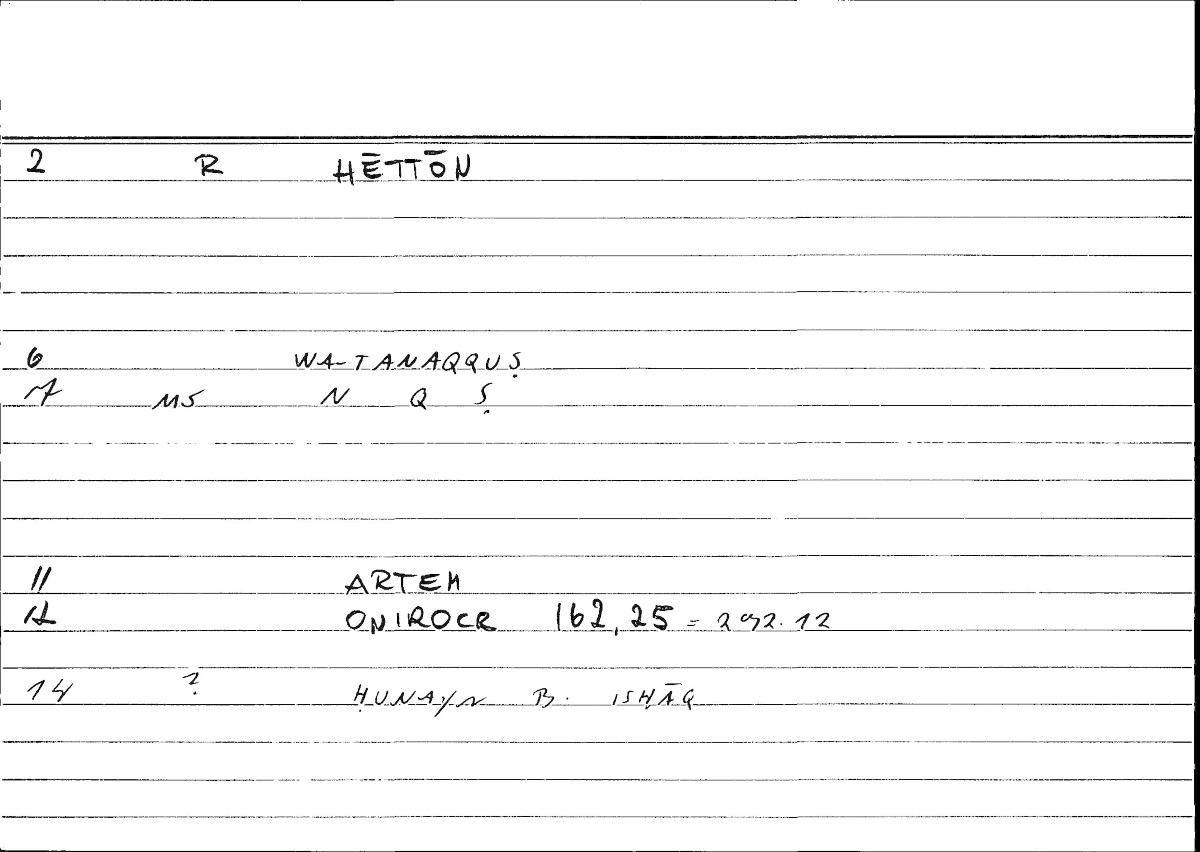 2 R HĒTTŌN
6 WA-TANAQQUṢ
7 MS N Q Ṣ
11 ARTEM
12 ONIROCR 162,25 = 292.12
14 ? ḤUNAYN B. ISḤĀQ